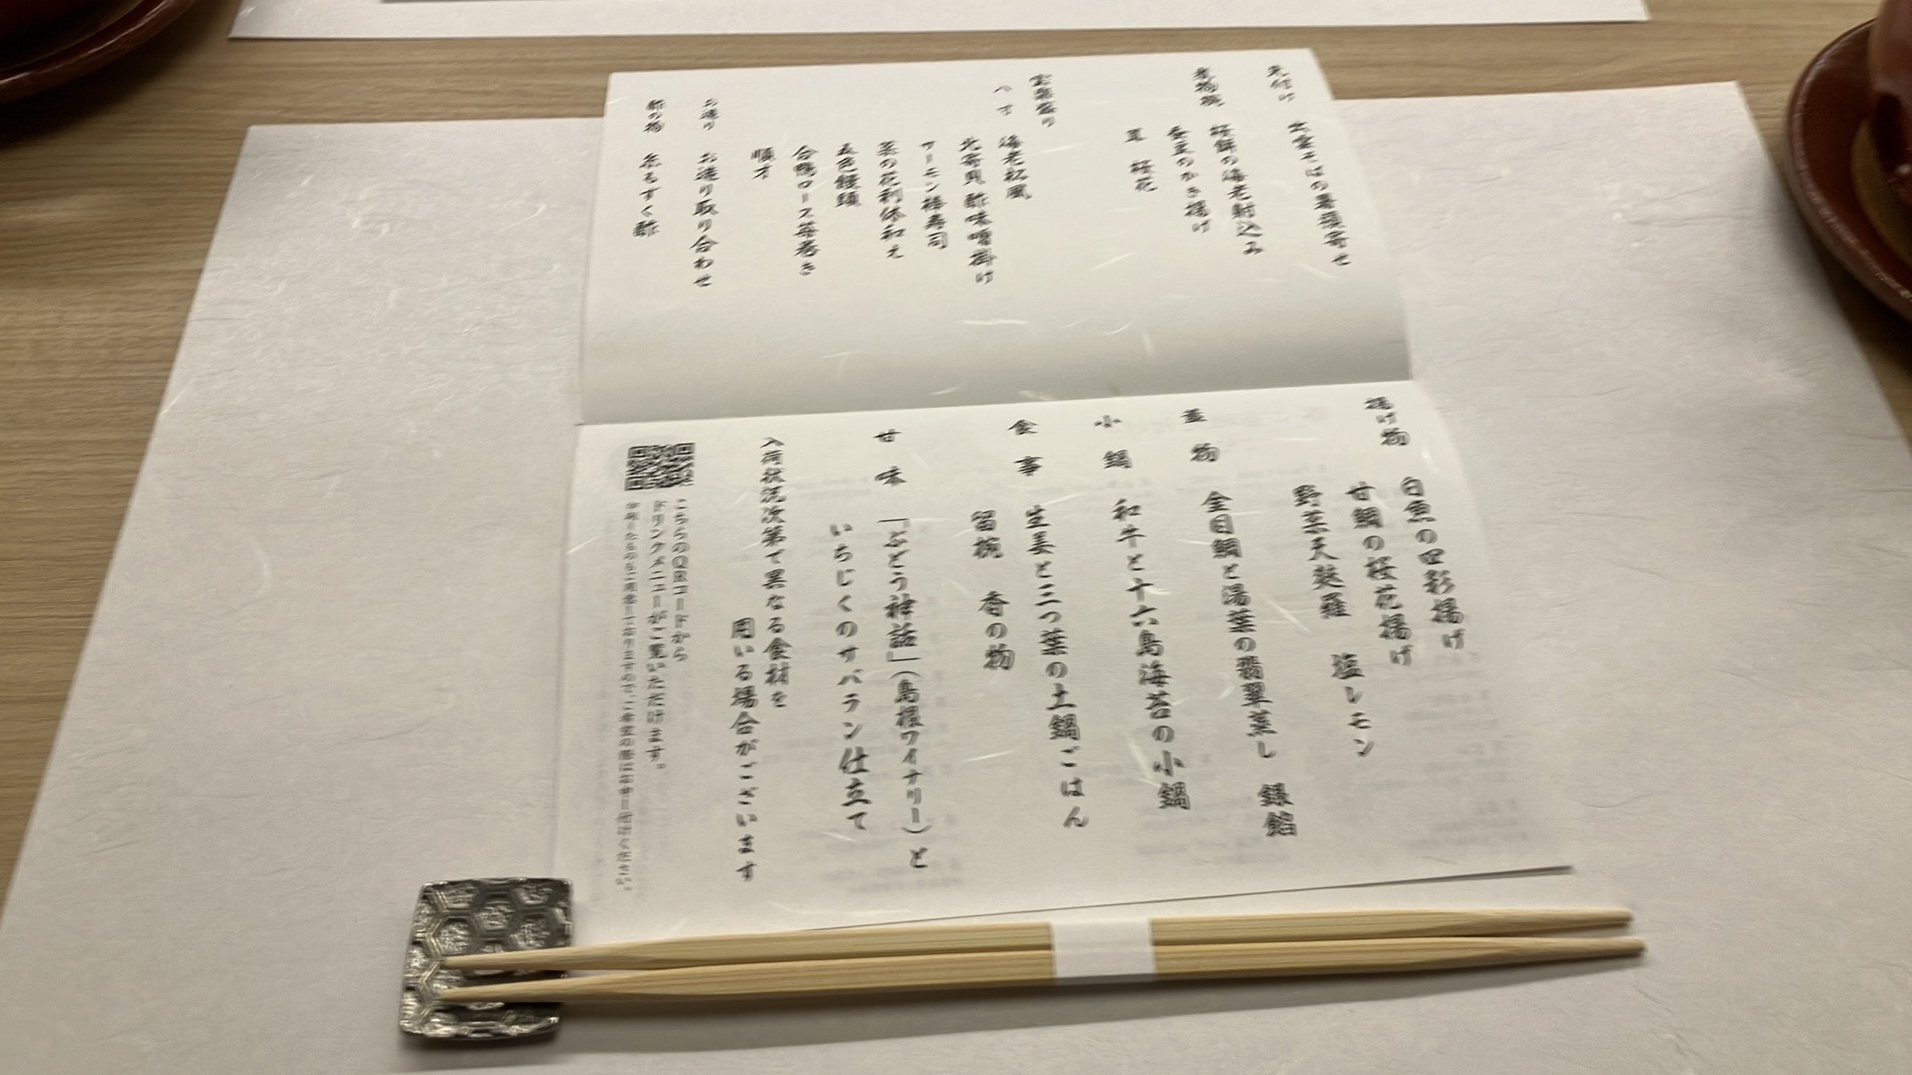 先付け
出雲そばの薯蕷寄せ
煮物椀
桜餅の海老射込み
蚕豆のかき揚げ
茸 桜花
宝楽盛り
へぎ
海老松風
北寄貝 酢味噌掛け
サーモン棒寿司
菜の花利休和え
五色饅頭
合鴨ロース葱巻き
順才
お造り
お造り取り合わせ
酢の物
糸もずく酢
揚げ物
白魚の四彩揚げ
甘鯛の桜花揚げ
野菜天麩羅 塩レモン
蓋物
金目鯛と湯葉の翡翠蒸し 銀餡
小鍋
和牛と十六島海苔の小鍋
食事
生姜と三つ葉の土鍋ごはん
留椀 香の物
甘味
「ぶどう神話」(島根ワイナリー)と
いちじくのサバラン仕立て
入荷状況次第で異なる食材を
用いる場合がございます
こちらのQRコードから
ドリンクメニューがご覧いただけます。